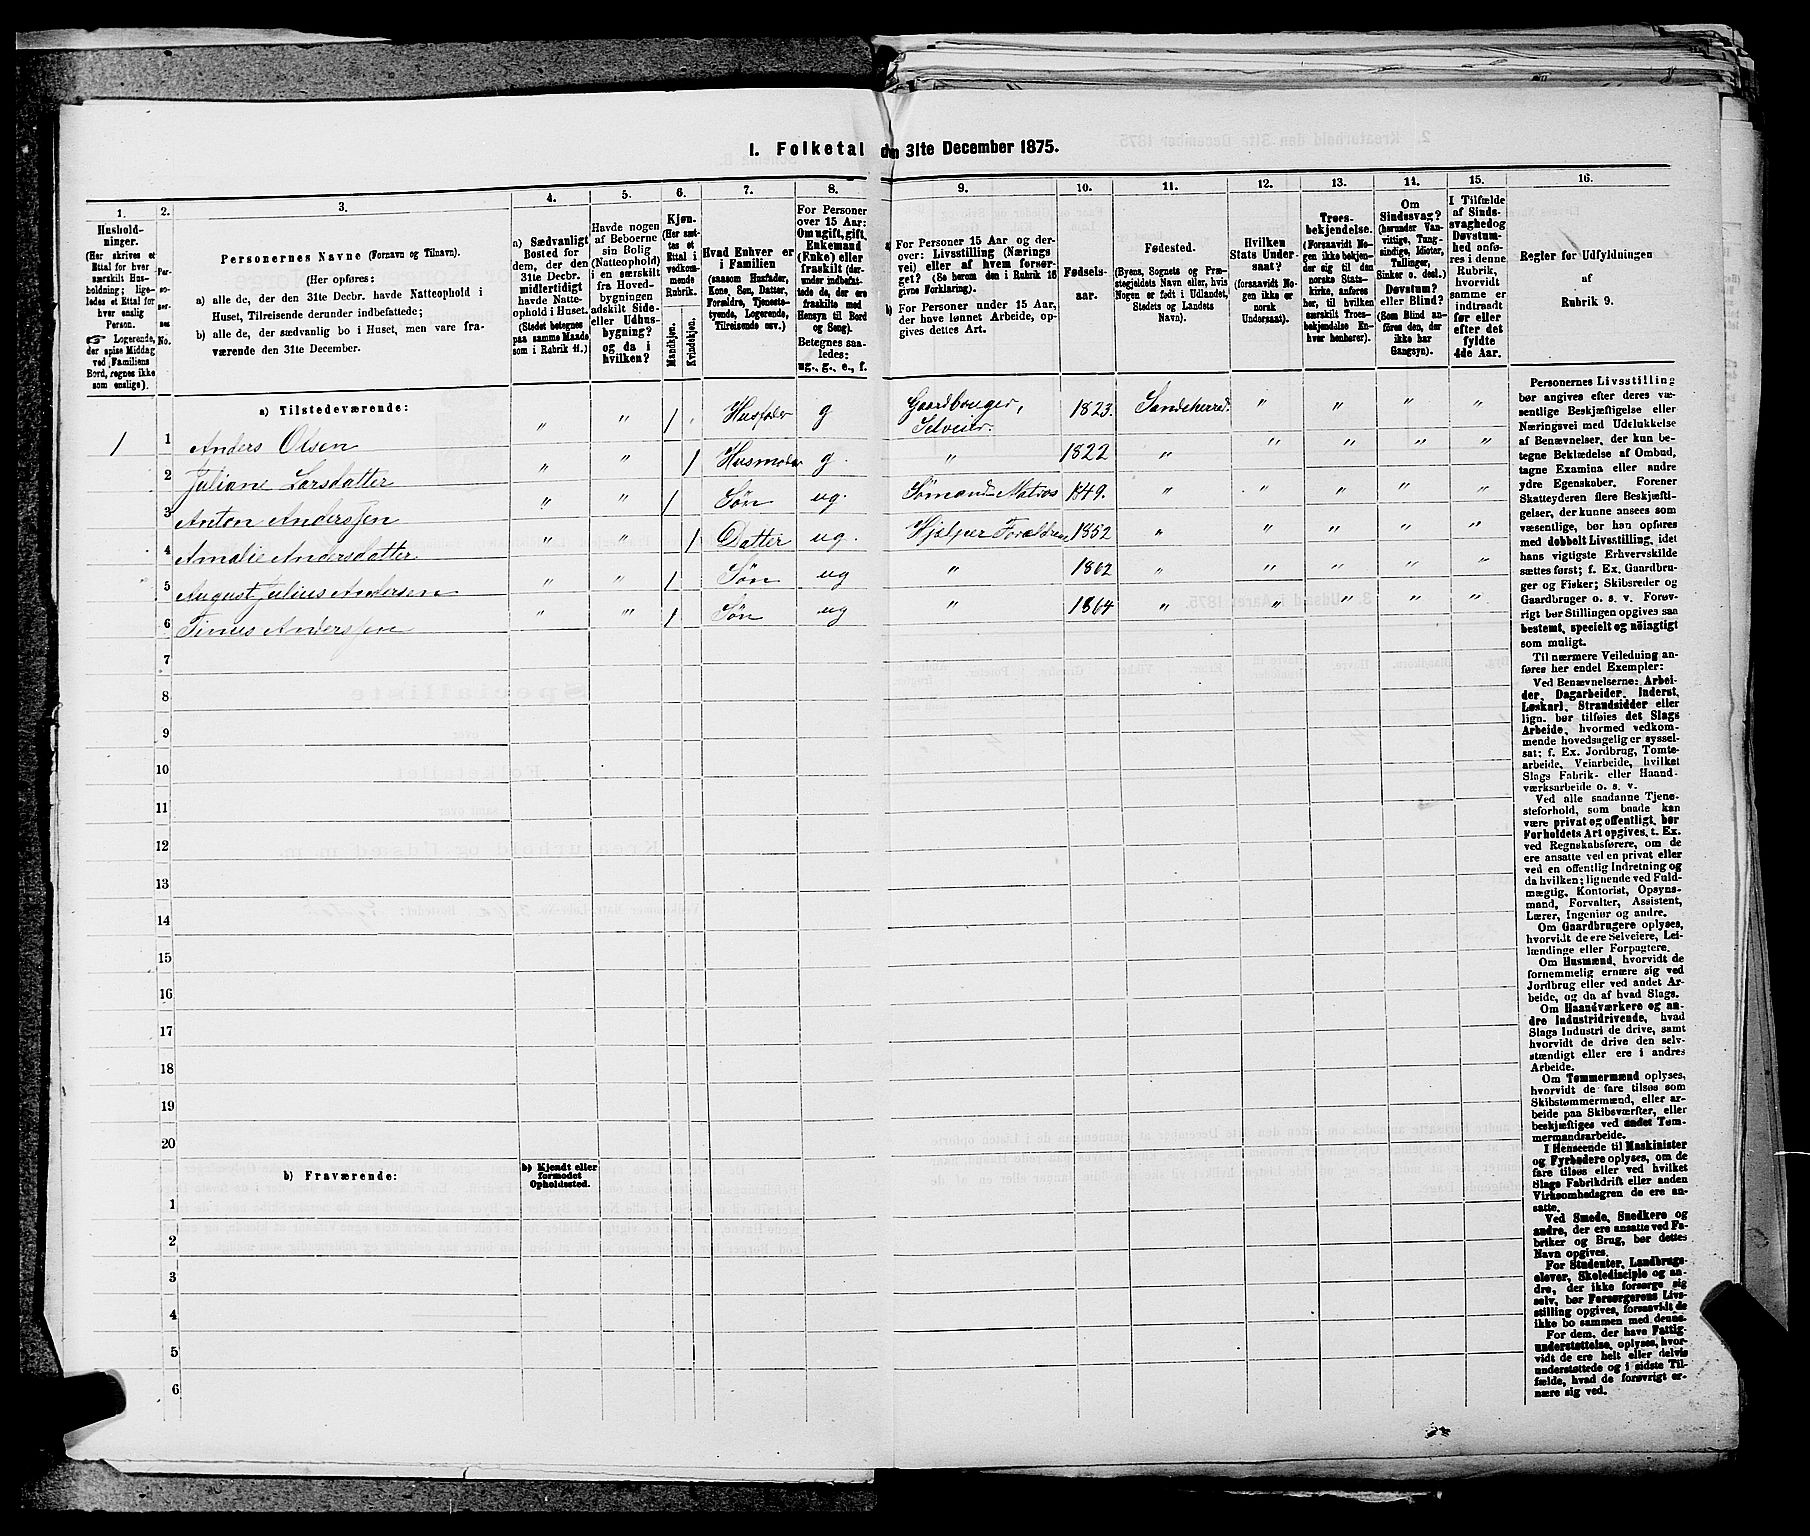 I. Folketal den 31te December 1875.
1. 2. 3. 4. 5. 6. 7. 8. 9. 10. 11. 12. 13. 14. 15. 16.
Hushold-
ninger.
(Her skrives et
Ettal for hver
særskilt Hus-
holdning; lige-
ledes et Ettal for
hver enslig
Person.
☞ Logerende,
der spise Middag
ved Familiens
Bord, regnes ikke
som enslige).
Per-
so-
ner-
nes
No.
Personernes Navne (Fornavn og Tilnavn).
(Her opføres:
a) alle de, der den 31te Decbr. havde Natteophold i
Huset, Tilreisende derunder indbefattede;
b) alle de, der sædvanlig bo i Huset, men vare fra-
værende den 31te December.
a) Sædvanligt
Bosted for
dem, der den
31te Decbr.
midlertidigt
havde Natte-
ophold i Huset.
(Stedet betegnes
paa samme Maade
som i Rubrik 11.)
Havde nogen
af Beboerne
sin Bolig
(Natteophold)
i en særskilt
fra Hoved-
bygningen
adskilt Side-
eller Udhus-
bygning?
og da i
hvilken?
Kjøn.
(Her sæt-
tes et
Ettal i
vedkom-
mende
Rubrik.
Mandkjøn.
Kvindekjøn.
Hvad Enhver er
i Familien
(saasom Husfader,
Kone, Søn, Datter,
Forældre, Tjeneste-
tyende, Logerende,
Tilreisende osv.)
For Personer
over 15 Aar:
Om ugift, gift,
Enkemand
(Enke) eller
fraskilt (der-
under indbefat-
tede de, der ere
fraskilte med
Hensyn til Bord
og Seng).
Betegnes saa-
ledes:
ug., g., e., f.
a) For Personer 15 Aar og der-
over: Livsstilling (Nærings-
vei) eller af hvem forsør-
get? (Se herom den i Rubrik 16
givne Forklaring).
b) For Personer under 15 Aar,
der have lønnet Arbeide, op-
gives dettes Art.
Fødsels-
aar.
Fødested.
(Byens, Sognets og Præ-
stegjeldets Navn eller, hvis
Nogen er født i Udlandet,
Stedets og Landets
Navn).
Hvilken
Stats Under-
saat?
(forsaavidt No-
gen ikke er
norsk
Undersaat).
Troes-
bekjendelse.
(Forsaavidt No-
gen ikke bekjen-
der sig til den
norske Stats-
kirke, anføres
her, til hvilken
særskilt Troes-
bekjendelse En-
hver henhører).
Om
Sindssvag?
(herunder Van-
vittige, Tung-
sindige, Idioter,
Tullinger,
Sinker o. desl.)
Døvstum?
eller Blind?
(Som Blind an-
føres den, der
ikke har
Gangsyn).
I Tilfælde
af Sinds-
svaghed og
Døvstum-
hed anfø-
res i denne
Rubrik,
hvorvidt
samme er
indtraadt
før eller
efter det
fyldte
4de Aar.
Regler for Udfyldningen
af
Rubrik 9.
a) Tilstedeværende:
1 1 Anders Olsen " " 1 Husfader g Gaardbruger, Selveier. 1823. Sandeherred. " " " "
2 Juliane Larsdatter " " 1 Husmoder g. " 1822 " " " " "
3 Anton Anderssen " " 1 Søn ug. Sømand Matros 1849. " " " " "
4 Amalie Andersdatter " " 1 Datter ug. Hjælper Forældrene 1852 " " " " "
5 August Julius Andersen " " 1 Søn ug " 1862 " " " " "
6 Sinus Anderssen " " 1 Søn ug " 1864 " " " " "
7
8
9
10
11
12
13
14
15
16
17
18
19
20
b) Fraværende:
b) Kjendt eller
formodet
Opholdssted.
1
2
3
4
5
6
Personernes Livsstilling
bør angives efter deres væ-
sentlige Beskjæftigelse eller
Næringsvei med Udelukkelse
af Benævnelser, der kun be-
tegne Beklædelse af Ombud,
tagne Examina eller andre
ydre Egenskaber. Forener
Skatteyderen flere Beskjæfti-
gelser, der kunne ansees som
væsentlige, bør han opføres
med dobbelt Livsstilling, idet
hans vigtigste Erhvervskilde
sættes først; f. Ex. Gaardbru-
ger og Fisker; Skibsreder og
Gaardbruger o. s. v. Forøv-
rigt bør Stillingen opgives saa
bestemt, specielt og nöiagtig
som muligt.
Til nærmere Veiledning an-
føres her endel Exempler:
Ved Benævnelserne: Arbei-
der, Dagarbeider, Inderst,
Løskarl, Strandsidder eller
lign. bør tilføies det Slags
Arbeide, hvormed vedkom-
mende hovedsagelig er syssel-
sat; f. Ex. Jordbrug, Tomte-
arbeide, Veiarbeide, hvilket
Slags Fabrik- eller Haand-
værksarbeide o. s. v.
Ved alle saadanne Tjene-
steforhold, som baade kan
være privat og offentligt, bør
Forholdets Art opgives, t. Ex.
ved Regnskabsførere, om de
ere ansatte ved en privat eller
ved en offentlig Indretning og
da hvilken; lignende ved Fuld-
mægtig, Kontorist, Opsyns-
mand, Forvalter, Assistent,
Lærer, Ingeniør og andre.
Om Gaardbrugere oplyses,
hvorvidt de ere Selveiere, Lei-
lændinge eller Forpagtere.
Om Husmænd, hvorvidt de
fornemmelig ernære sig ved
Jordbrug eller ved andet Ar-
beide, og da af hvad Slags.
Om Haandværkere og an-
dre Industridrivende, hvad
Slags Industri de drive, samt
hvorvidt de drive den selv-
stændigt eller ere i andres
Arbeide.
Om Tømmermænd oplyses,
hvorvidt de fare tilsøs som
Skibstømmermænd, eller ar-
beide paa Skibsværfter, eller
beskjæftiges ved andet Tøm-
mermandsarbeide.
I Henseende til Maskinister
og Fyrbødere oplyses, om de
fare tilsøs eller ved hvilket
Slags Fabrikdrift eller anden
Virksomhedsgren de ere an-
satte.
Ved Smede, Snedkere og
andre, der ere ansatte ved Fa-
briker og Brug, bør dettes
Navn opgives.
For Studenter, Landbrugs-
elever, Skoledisciple og an-
dre, der ikke forsørge sig
selv, bør Forsørgerens Livs-
stilling opgives, forsaavidt de
ikke bo sammen med denne.
For dem, der have Fattig-
understøttelse, oplyses, hvor-
vidt de ere helt eller delvis
understøttede og i sidste Til-
fælde, hvad de forøvrigt er-
nære sig ved.